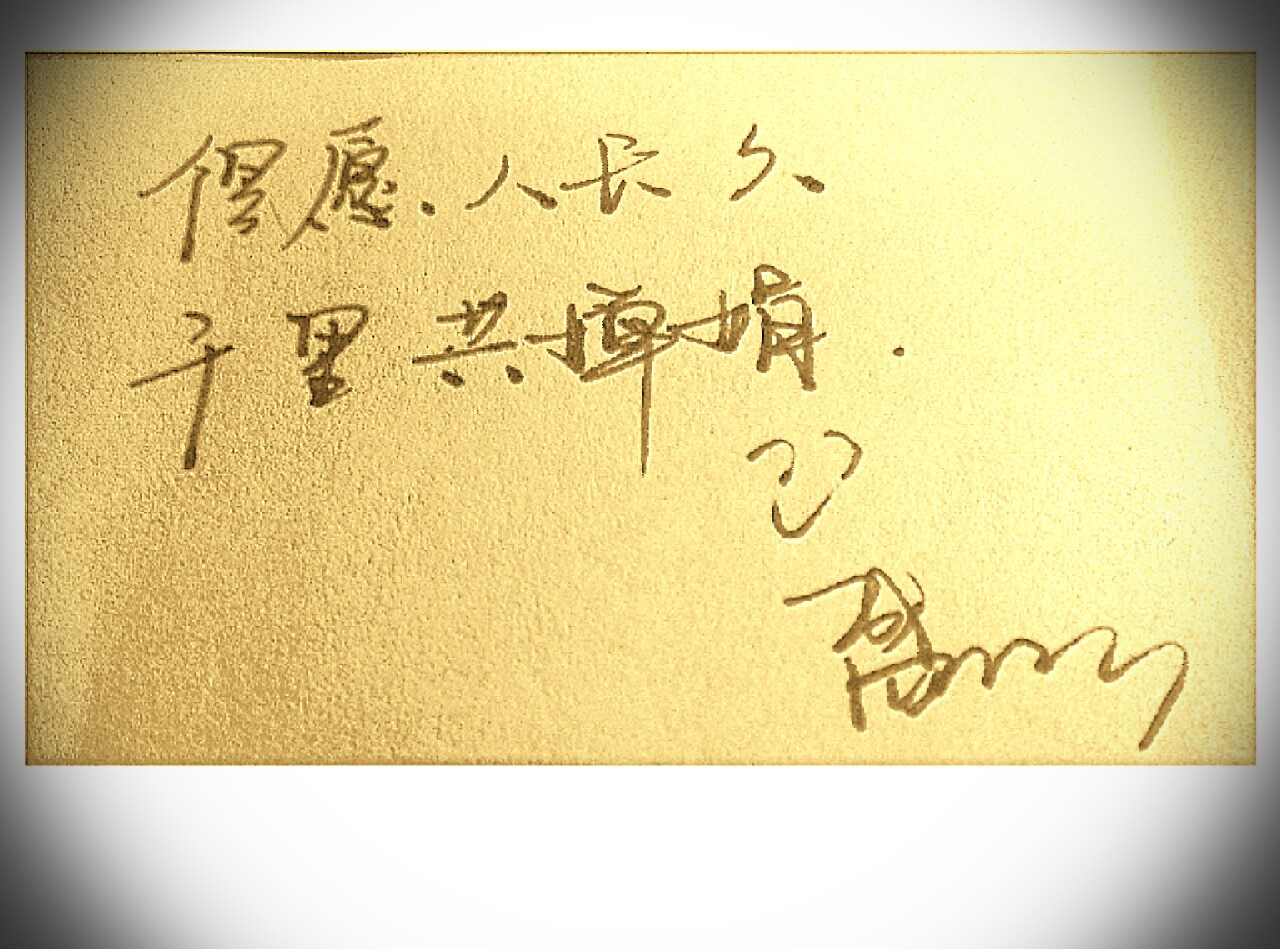 但愿.人长久
千里共婵娟.